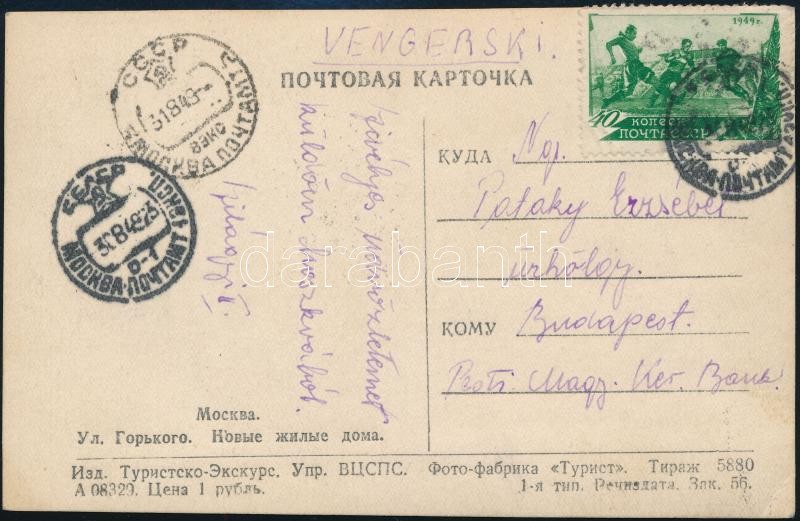 VENGERSKI.
ПОЧТОВАЯ КАРТОЧКА
1949г.
40 КОПЕЕК
ПОЧТА СССР
СССР
МОСКВА ПОЧТАМТ
31849
СССР
30849-23
МОСКВА-ПОЧТАМТ
küldöm Moszkvából.
КУДА Ng.
Pataky Erzsébet
úrhölgy.
КОМУ Budapest.
Pesti Magy. Ker. Bank.
darabanth
Москва.
Ул. Горького. Новые жилые дома.
Изд. Туристско-Экскурс. Упр. ВЦСПС. Фото-фабрика «Турист». Тираж 5880
А 08329. Цена 1 рубль. 1-я тип. Речиздата. Зак. 56.